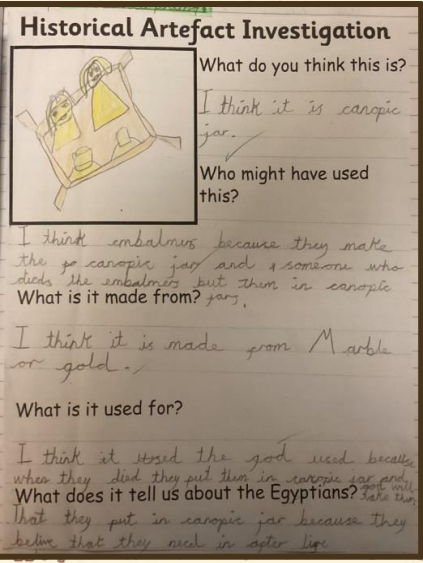 Historical Artefact Investigation
What do you think this is?
I think it is canopic
jar.
Who might have used
this?
I think embalmers because they make
the canopic jar and someone who
dieds the embalmers but them in canopic
What is it made from? jars.
I think it is made from Marble
or gold.
What is it used for?
I think it used the god used because
when they died they put them in canopic jar and
What does it tell us about the Egyptians? god will
take them
That they put in canopic jar because they
belive that they need in after live